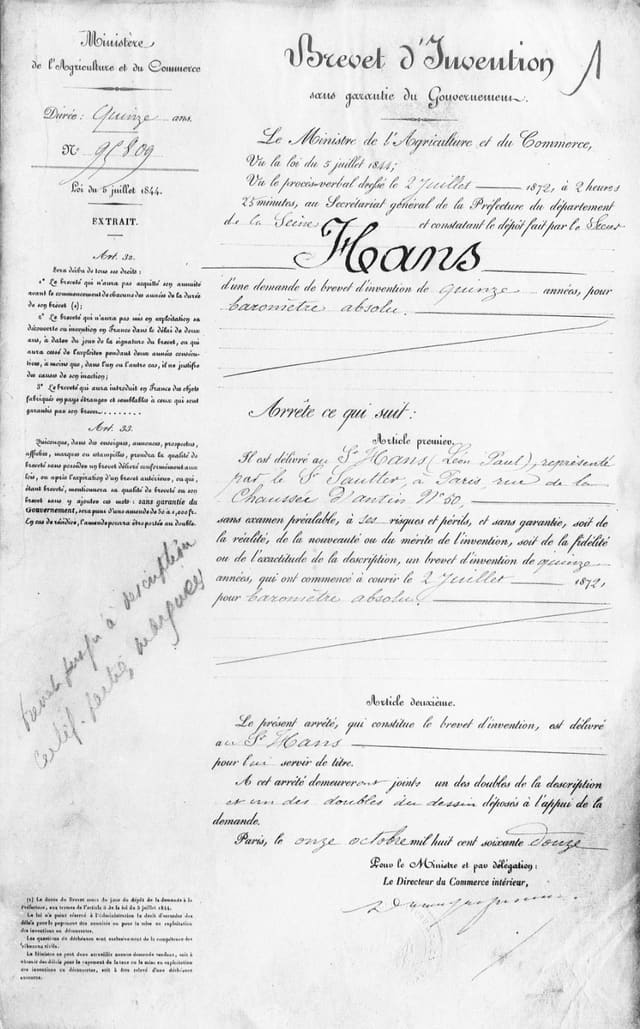 Ministère
de l'Agriculture et du Commerce
Durée: Quinze ans.
N° 95809
Loi du 5 juillet 1844.
EXTRAIT.
Art. 32.
Sera déchu de tous ses droits:
1° Le breveté qui n'aura pas acquitté son annuité
avant le commencement de chacune des années de la durée
de son brevet (1);
2° Le breveté qui n'aura pas mis en exploitation sa
découverte ou invention en France dans le délai de deux
ans, à dater du jour de la signature du brevet, ou qui
aura cessé de l'exploiter pendant deux années consécu-
tives, à moins que, dans l'un ou l'autre cas, il ne justifie
des causes de son inaction;
3° Le breveté qui aura introduit en France des objets
fabriqués en pays étrangers et semblables à ceux qui sont
garantis par son brevet........
Art. 33.
Quiconque, dans des enseignes, annonces, prospectus,
affiches, marques ou estampilles, prendra la qualité de
breveté sans posséder un brevet délivré conformément aux
lois, ou après l'expiration d'un brevet antérieur, ou qui,
étant breveté, mentionnera sa qualité de breveté ou son
brevet sans y ajouter ces mots: sans garantie du
Gouvernement, sera puni d'une amende de 50 à 1,000 fr.
En cas de récidive, l'amende pourra être portée au double.
description
(1) La durée du Brevet court du jour du dépôt de la demande à la
Préfecture, aux termes de l'article 8 de la loi du 5 juillet 1844.
La loi n'a point réservé à l'Administration le droit d'accorder des
délais pour le payement des annuités ou pour la mise en exploitation
des inventions ou découvertes.
Les questions de déchéance sont exclusivement de la compétence des
tribunaux civils.
Le Ministre ne peut donc accueillir aucune demande tendant, soit à
obtenir des délais pour le payement de la taxe ou la mise en exploitation
des inventions ou découvertes, soit à être relevé d'une déchéance
encourue.
Brevet d'Invention
sans garantie du Gouvernement.
1
Le Ministre de l'Agriculture et du Commerce,
Vu la loi du 5 juillet 1844;
Vu le procès-verbal dressé le 2 Juillet 1872, à 2 heures
25 minutes, au Secrétariat général de la Préfecture du département
de la Seine et constatant le dépôt fait par le Sieur
Hans
d'une demande de brevet d'invention de quinze années, pour
baromètre absolu.
Arrête ce qui suit:
Article premier.
Il est délivré au Sr Hans (Léon Paul), représenté
par le Sr Sautter, à Paris, rue de la
Chaussée d'antin N° 50,
sans examen préalable, à ses risques et périls, et sans garantie, soit de
la réalité, de la nouveauté ou du mérite de l'invention, soit de la fidélité
ou de l'exactitude de la description, un brevet d'invention de quinze
années, qui ont commencé à courir le 2 Juillet 1872,
pour baromètre absolu.
Article deuxième.
Le présent arrêté, qui constitue le brevet d'invention, est délivré
au Sr Hans
pour lui servir de titre.
A cet arrêté demeureront joints un des doubles de la description
et un des doubles du dessin déposés à l'appui de la
demande.
Paris, le onze octobre mil huit cent soixante douze
Pour le Ministre et par délégation:
Le Directeur du Commerce intérieur,